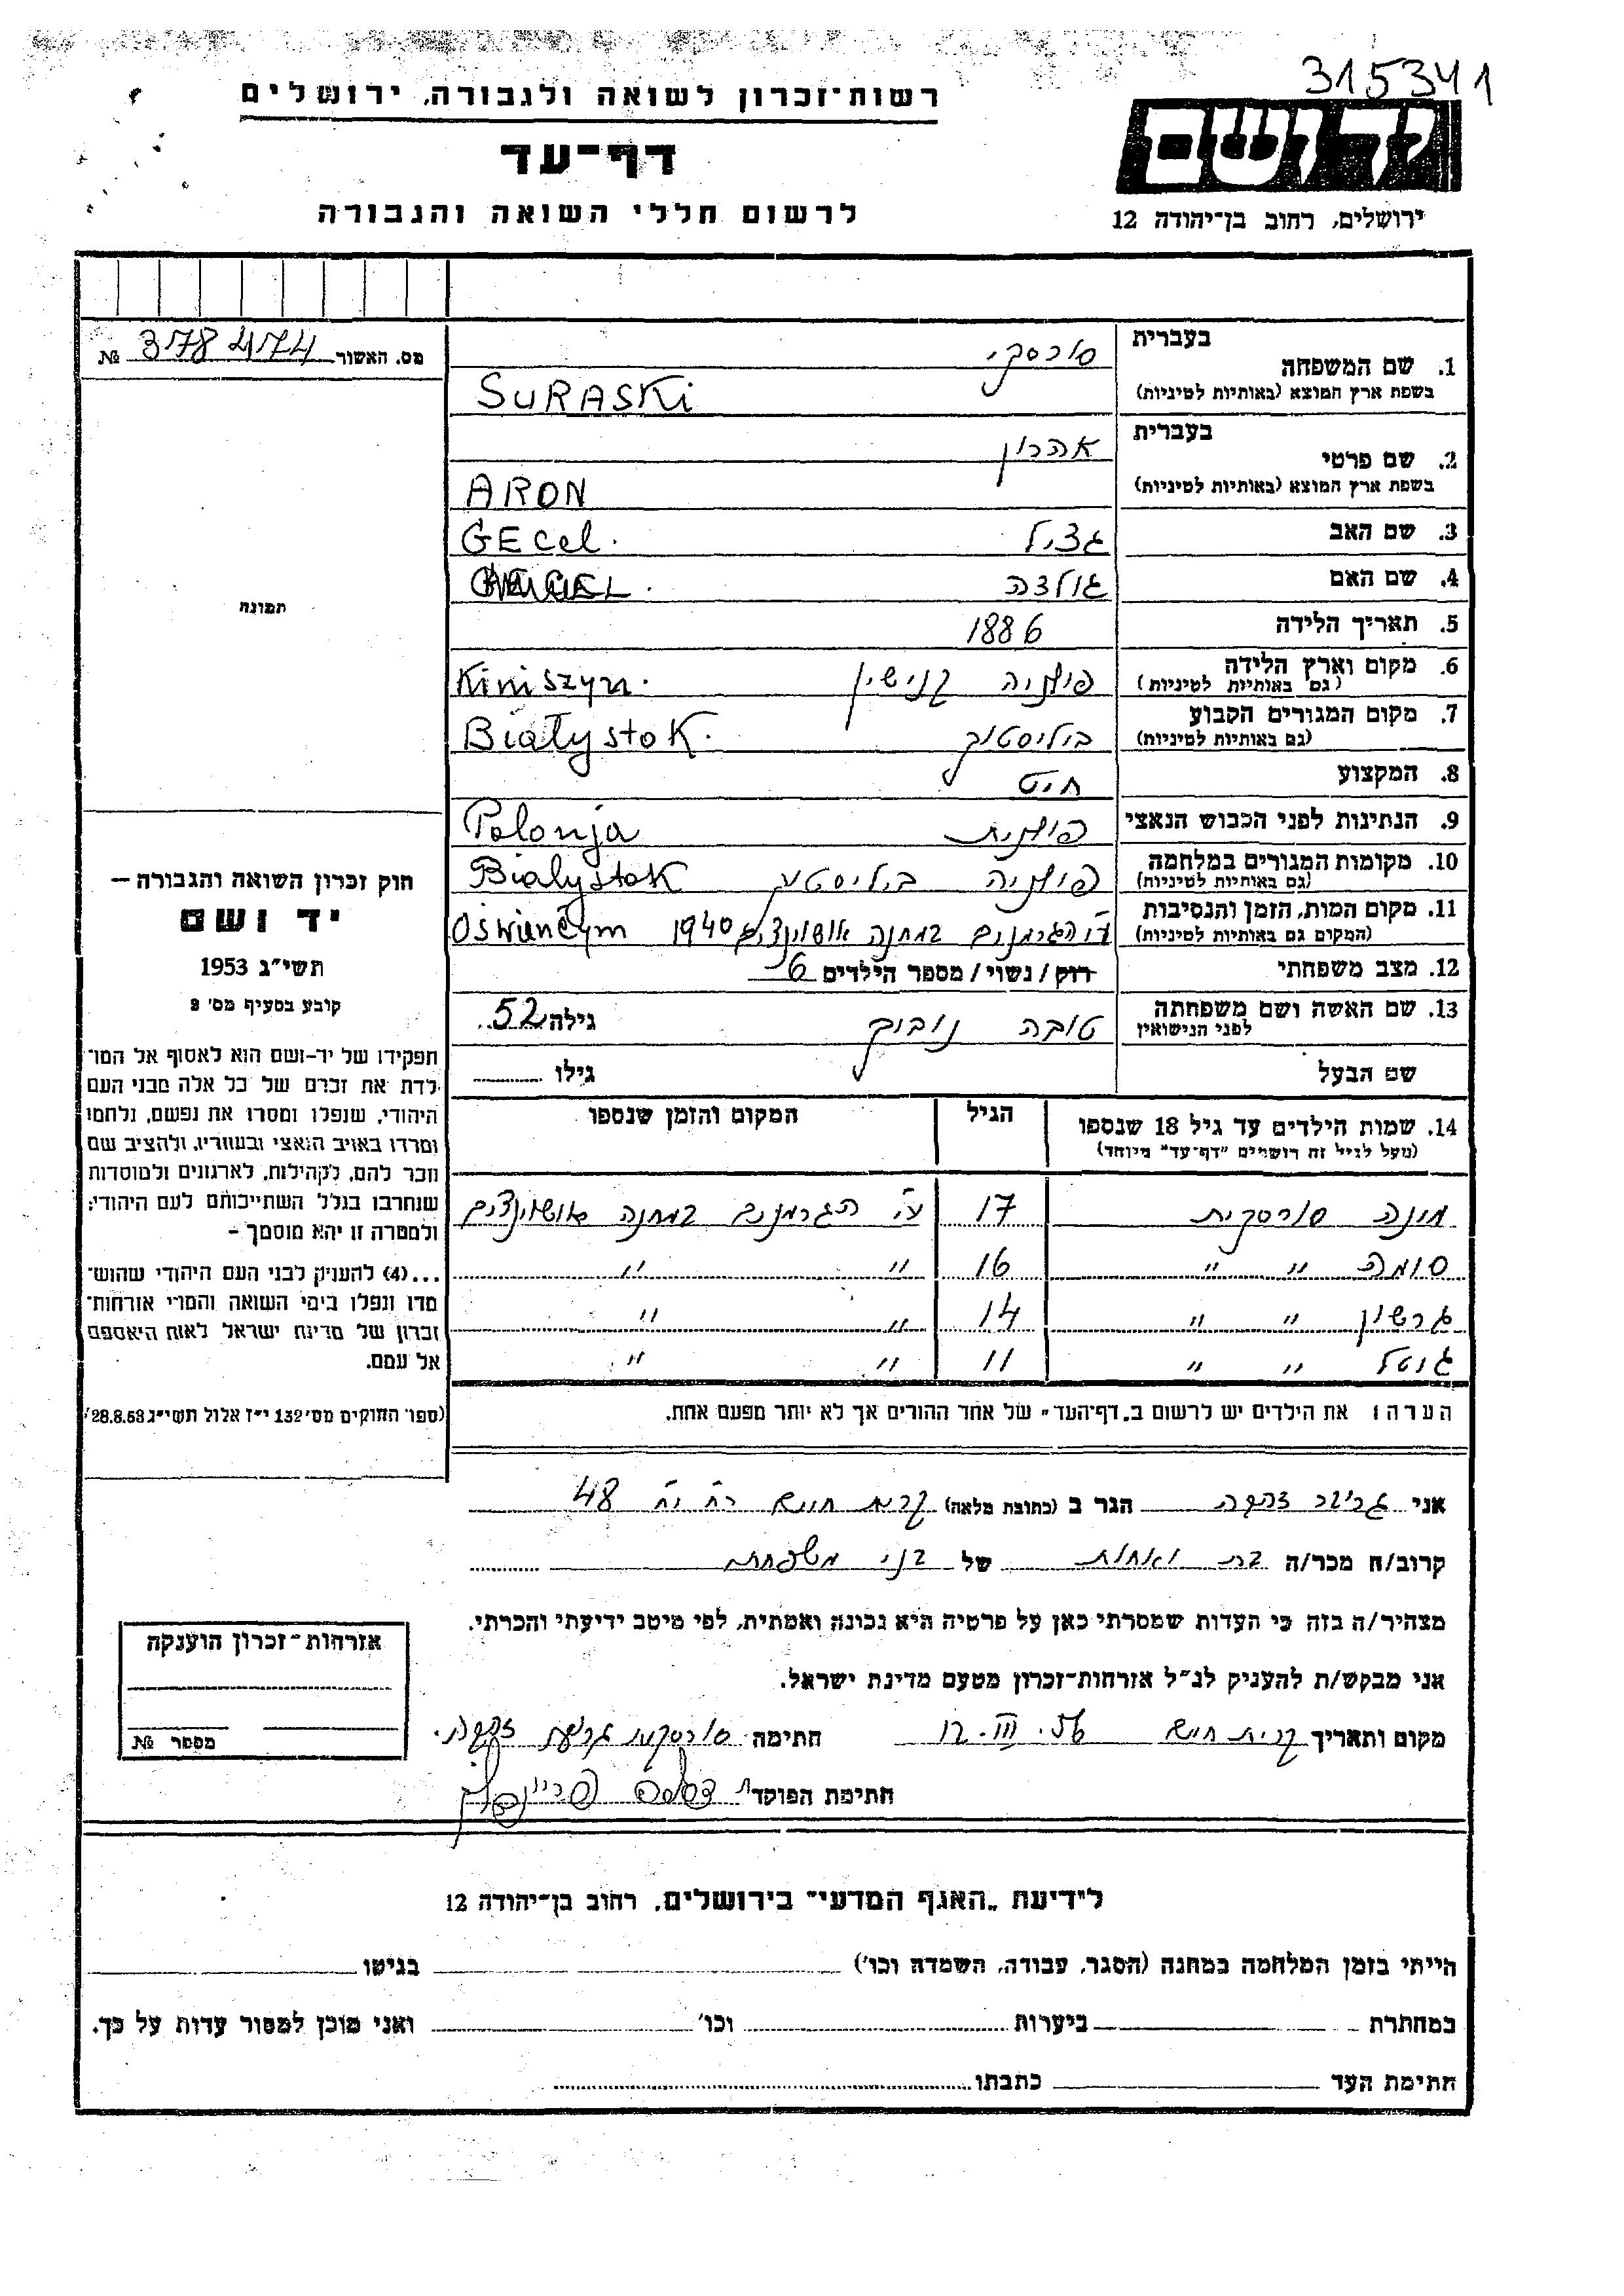 315341
רשות־זכרון לשואה ולגבורה, ירושלים
יד ושם
דף־עד
לרשום חללי השואה והגבורה
ירושלים, רחוב בן־יהודה 12
מס. האשור 378474 №
1. שם המשפחה
בעברית סורסקי
בשפת ארץ המוצא (באותיות לטיניות) SURASKi
2. שם פרטי
בעברית אהרון
בשפת ארץ המוצא (באותיות לטיניות) ARON
3. שם האב גציל GECel.
4. שם האם גולדה
5. תאריך הלידה 1886
6. מקום וארץ הלידה פולניה קנישין Kiniszyn.
(גם באותיות לטיניות)
7. מקום המגורים הקבוע ביליסטוק Białystok.
(גם באותיות לטיניות)
8. המקצוע חיט
9. הנתינות לפני הכבוש הנאצי פולנית Polonja
10. מקומות המגורים במלחמה פולניה ביליסטוק Bialystok
(גם באותיות לטיניות)
11. מקום המות, הזמן והנסיבות ע"י הגרמנים במחנה 1940
(המקום גם באותיות לטיניות)
12. מצב משפחתי רוק/נשוי/מספר הילדים 6
13. שם האשה ושם משפחתה טובה גילה 52
לפני הנישואין
שם הבעל גילו
14. שמות הילדים עד גיל 18 שנספו הגיל המקום והזמן שנספו
(מעל לגיל זה רושמים "דף־עד" מיוחד)
סורסקית 17 ע"י הגרמנים במחנה
" " 16 " "
גרשון " " 14 " "
" " 11 " "
הערה: את הילדים יש לרשום ב"דף־העד" של אחד ההורים אך לא יותר מפעם אחת.
תמונה
חוק זכרון השואה והגבורה —
יד ושם
תשי"ג 1953
קובע בסעיף מס' 2
תפקידו של יד־ושם הוא לאסוף אל המו־
לדת את זכרם של כל אלה מבני העם
היהודי, שנפלו ומסרו את נפשם, נלחמו
ומרדו באויב הנאצי ובעוזריו, ולהציב שם
וזכר להם, לקהילות, לארגונים ולמוסדות
שנחרבו בגלל השתייכותם לעם היהודי;
ולמטרה זו יהא מוסמך –
...(4) להעניק לבני העם היהודי שהוש־
מדו ונפלו בימי השואה והמרי אזרחות־
זכרון של מדינת ישראל לאות היאספם
אל עמם.
(ספר החוקים מס' 132 י"ז אלול תשי"ג 28.8.53)
אני הגר ב (כתובת מלאה) 48
קרוב/ה מכר/ה בת ואחות של בני משפחת
מצהיר/ה בזה כי העדות שמסרתי כאן על פרטיה היא נכונה ואמתית, לפי מיטב ידיעתי והכרתי.
אני מבקש/ת להעניק לנ"ל אזרחות־זכרון מטעם מדינת ישראל.
מקום ותאריך קרית חיים 12.III.56 חתימה
חתימת הפוקד
אזרחות־זכרון הוענקה
מספר №
לידיעת "האגף המדעי" בירושלים, רחוב בן־יהודה 12
הייתי בזמן המלחמה במחנה (הסגר, עבודה, השמדה וכו') בגיטו
במחתרת ביערות וכו' ואני מוכן למסור עדות על כך.
חתימת העד כתבתו